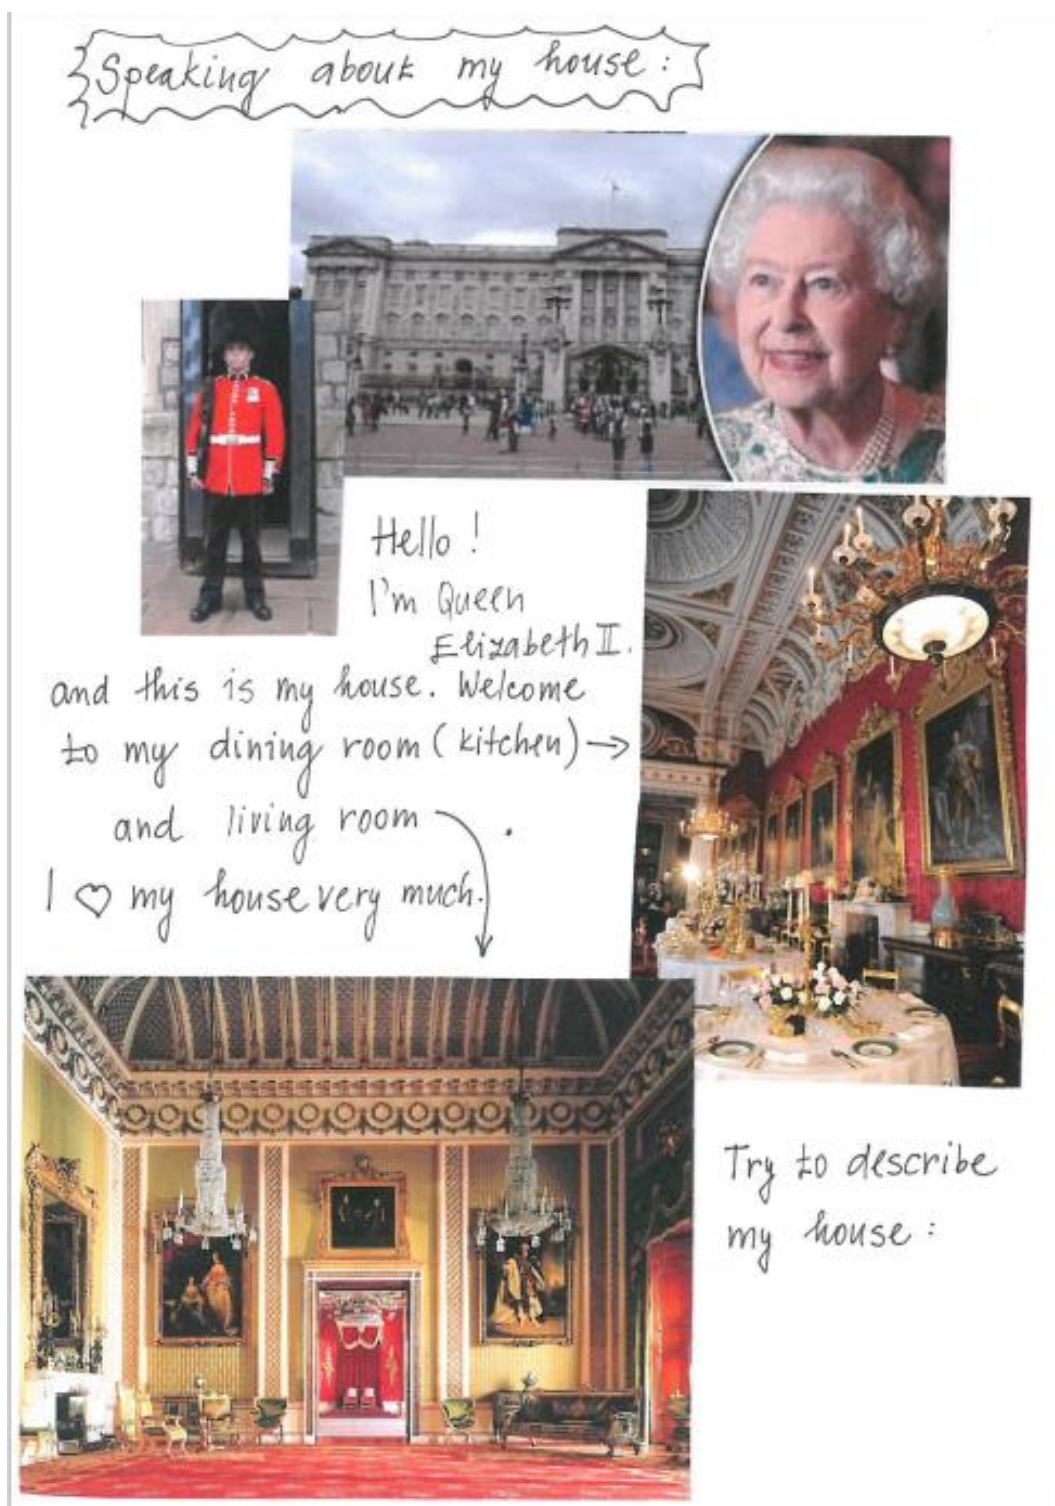 Speaking about my house:
Hello!
I'm Queen
Elizabeth II.
and this is my house. Welcome
to my dining room (kitchen) →
and living room .
I ♡ my house very much.
Try to describe
my house: